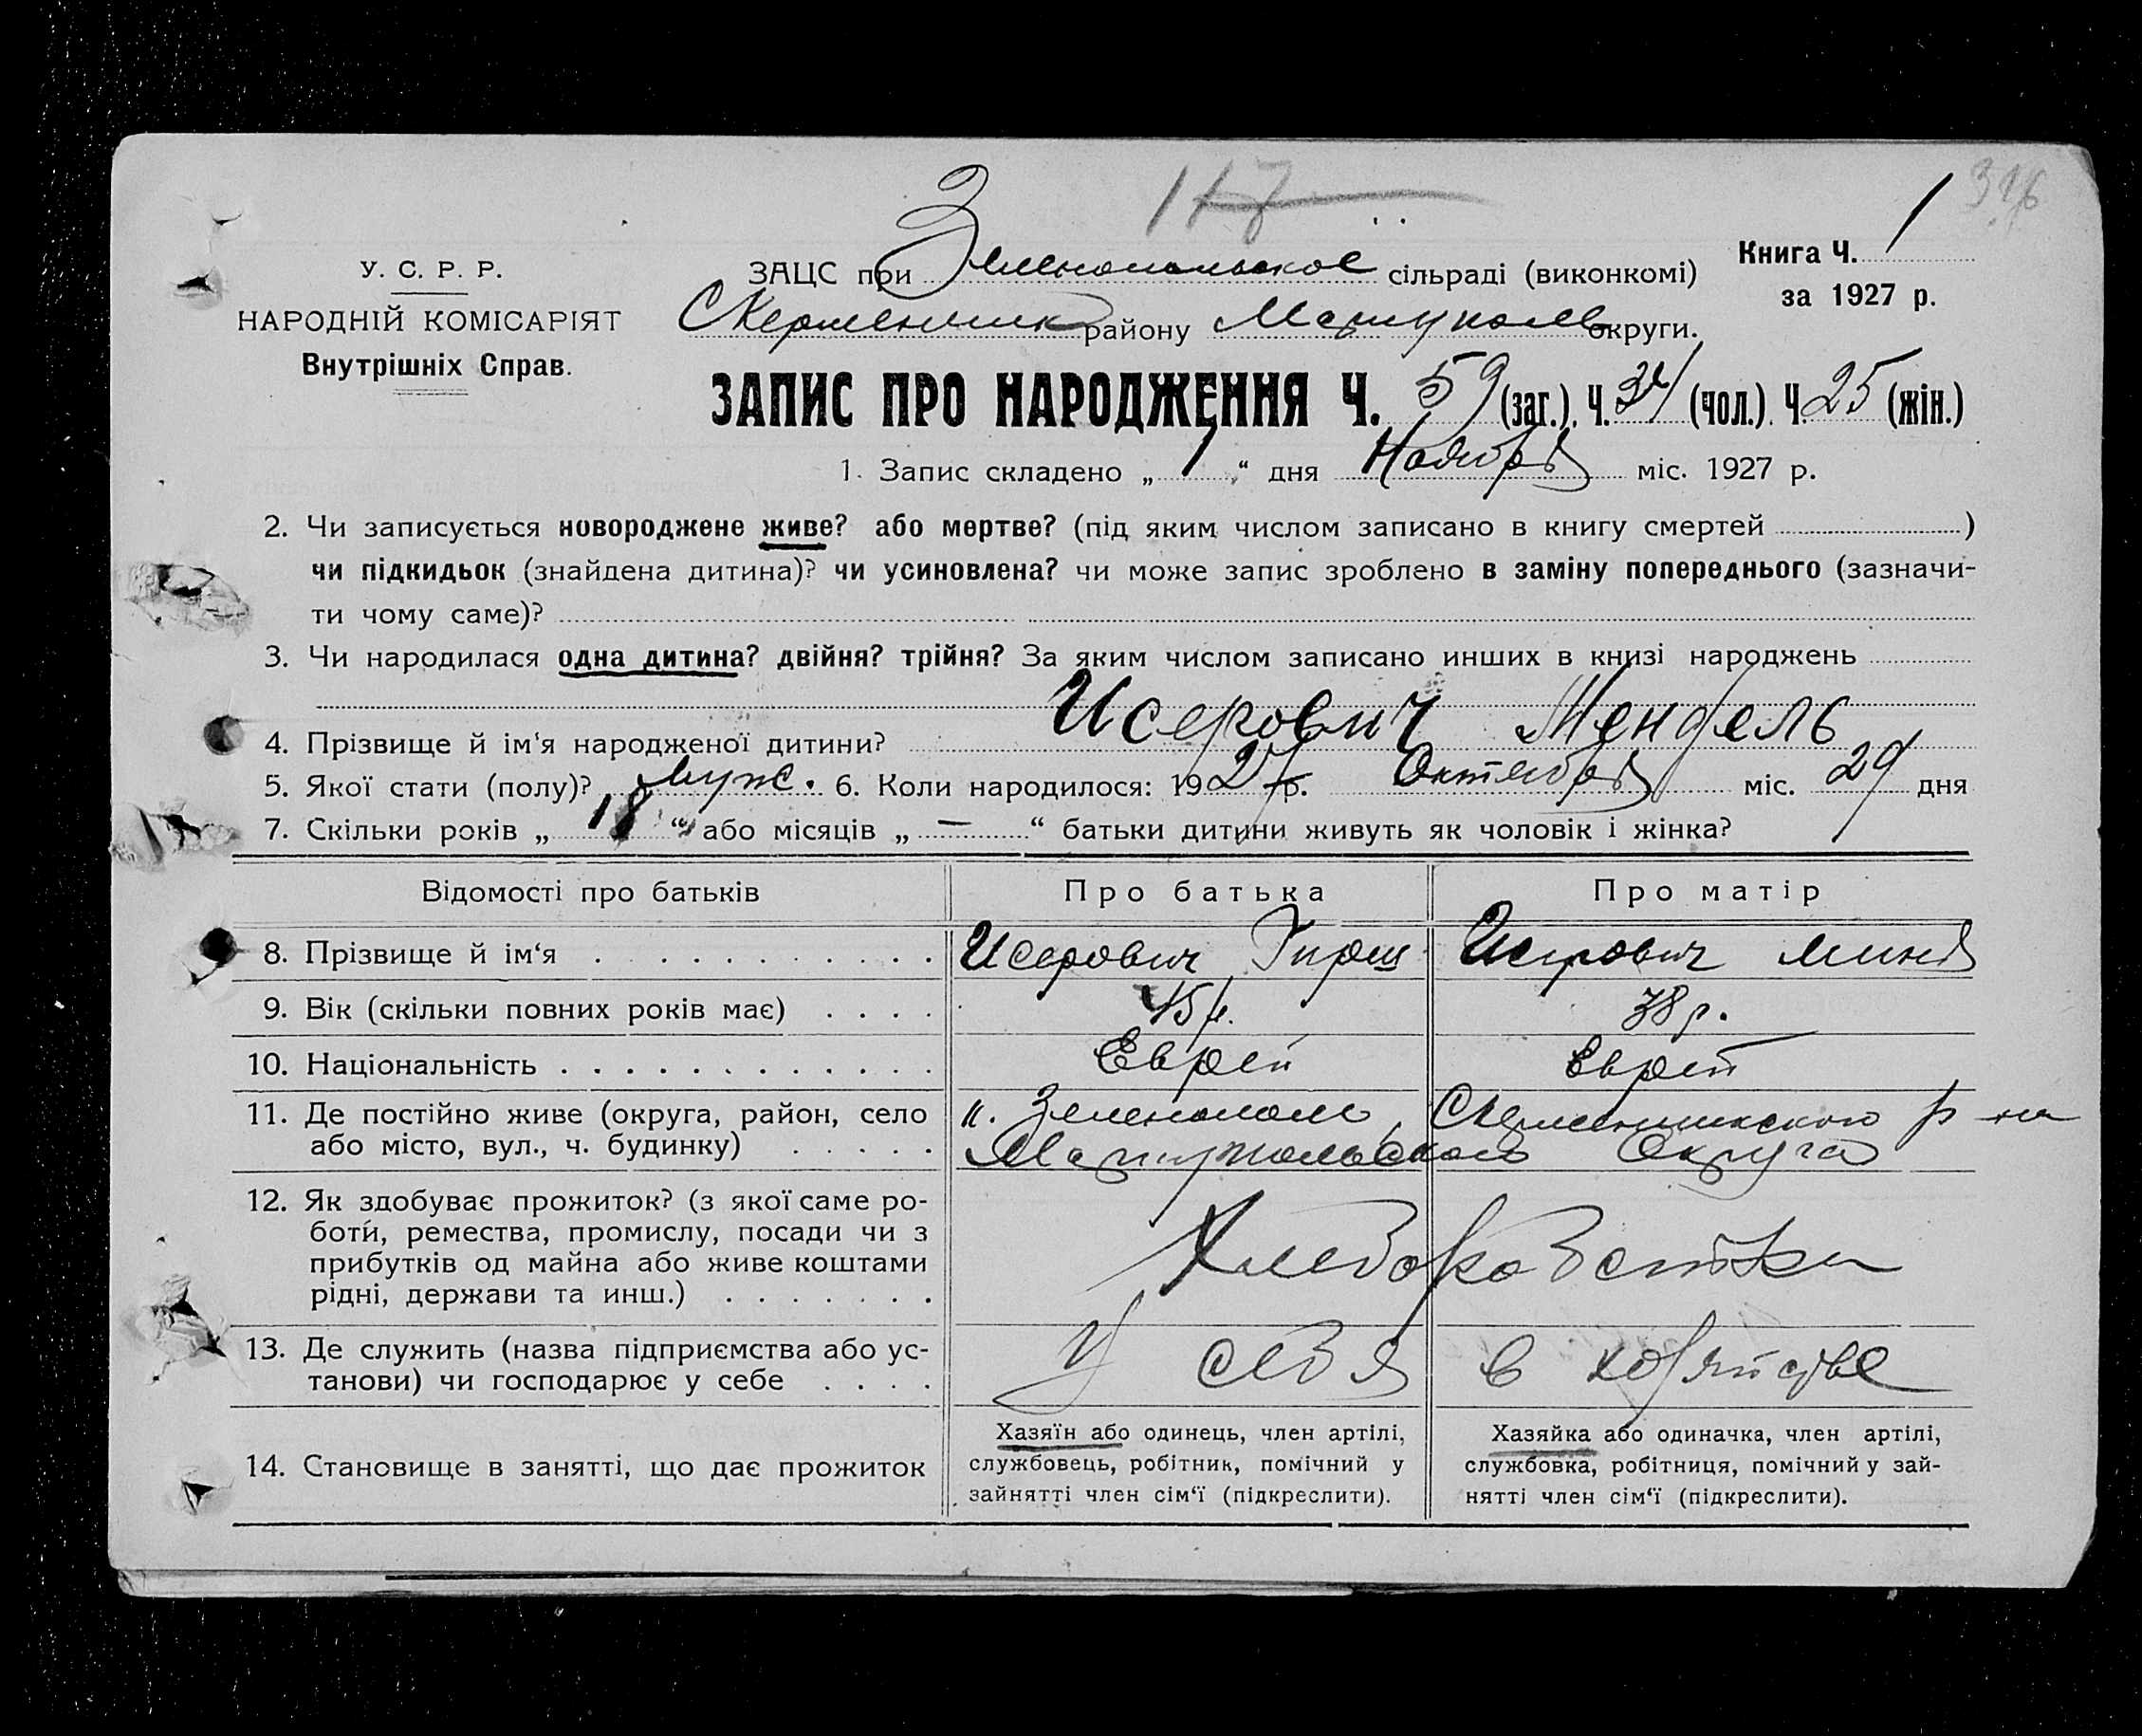 117
376
У. С. Р. Р.
НАРОДНІЙ КОМІСАРІЯТ
Внутрішніх Справ.
ЗАЦС при Зеленопольское сільраді (виконкомі)
Книга Ч. 1
за 1927 р.
району Мариуполь округи.
ЗАПИС ПРО НАРОДЖЕННЯ Ч. 59 (заг.). Ч. 34 (чол.). Ч. 25 (жін.)
1. Запис складено „ 1 “ дня Ноября міс. 1927 р.
2. Чи записується новороджене живе? або мертве? (під яким числом записано в книгу смертей )
чи підкидьок (знайдена дитина)? чи усиновлена? чи може запис зроблено в заміну попереднього (зазначи-
ти чому саме)?
3. Чи народилася одна дитина? двійня? трійня? За яким числом записано инших в книзі народжень
4. Прізвище й ім‘я народженої дитини? Исерович Мендель
5. Якої стати (полу)? муж. 6. Коли народилося: 1927 р. Октября міс. 29 дня
7. Скільки років „ 18 “ або місяців „ — “ батьки дитини живуть як чоловік і жінка?
Відомості про батьків Про батька Про матір
8. Прізвище й ім‘я Исерович Гирш Исерович Миня
9. Вік (скільки повних років має) 45 р. 38 р.
10. Національність Еврей Еврей
11. Де постійно живе (округа, район, село
або місто, вул., ч. будинку)
к. Зеленополь, р-на
Мариупольского Округа
12. Як здобуває прожиток? (з якої саме ро-
боти, ремества, промислу, посади чи з
прибутків од майна або живе коштами
рідні, держави та инш.)
13. Де служить (назва підприємства або ус-
танови) чи господарює у себе
у себя в хозяйстве
14. Становище в занятті, що дає прожиток
Хазяїн або одинець, член артілі,
службовець, робітник, помічний у
зайнятті член сім‘ї (підкреслити).
Хазяйка або одиначка, член артілі,
службовка, робітниця, помічний у зай-
нятті член сім‘ї (підкреслити).